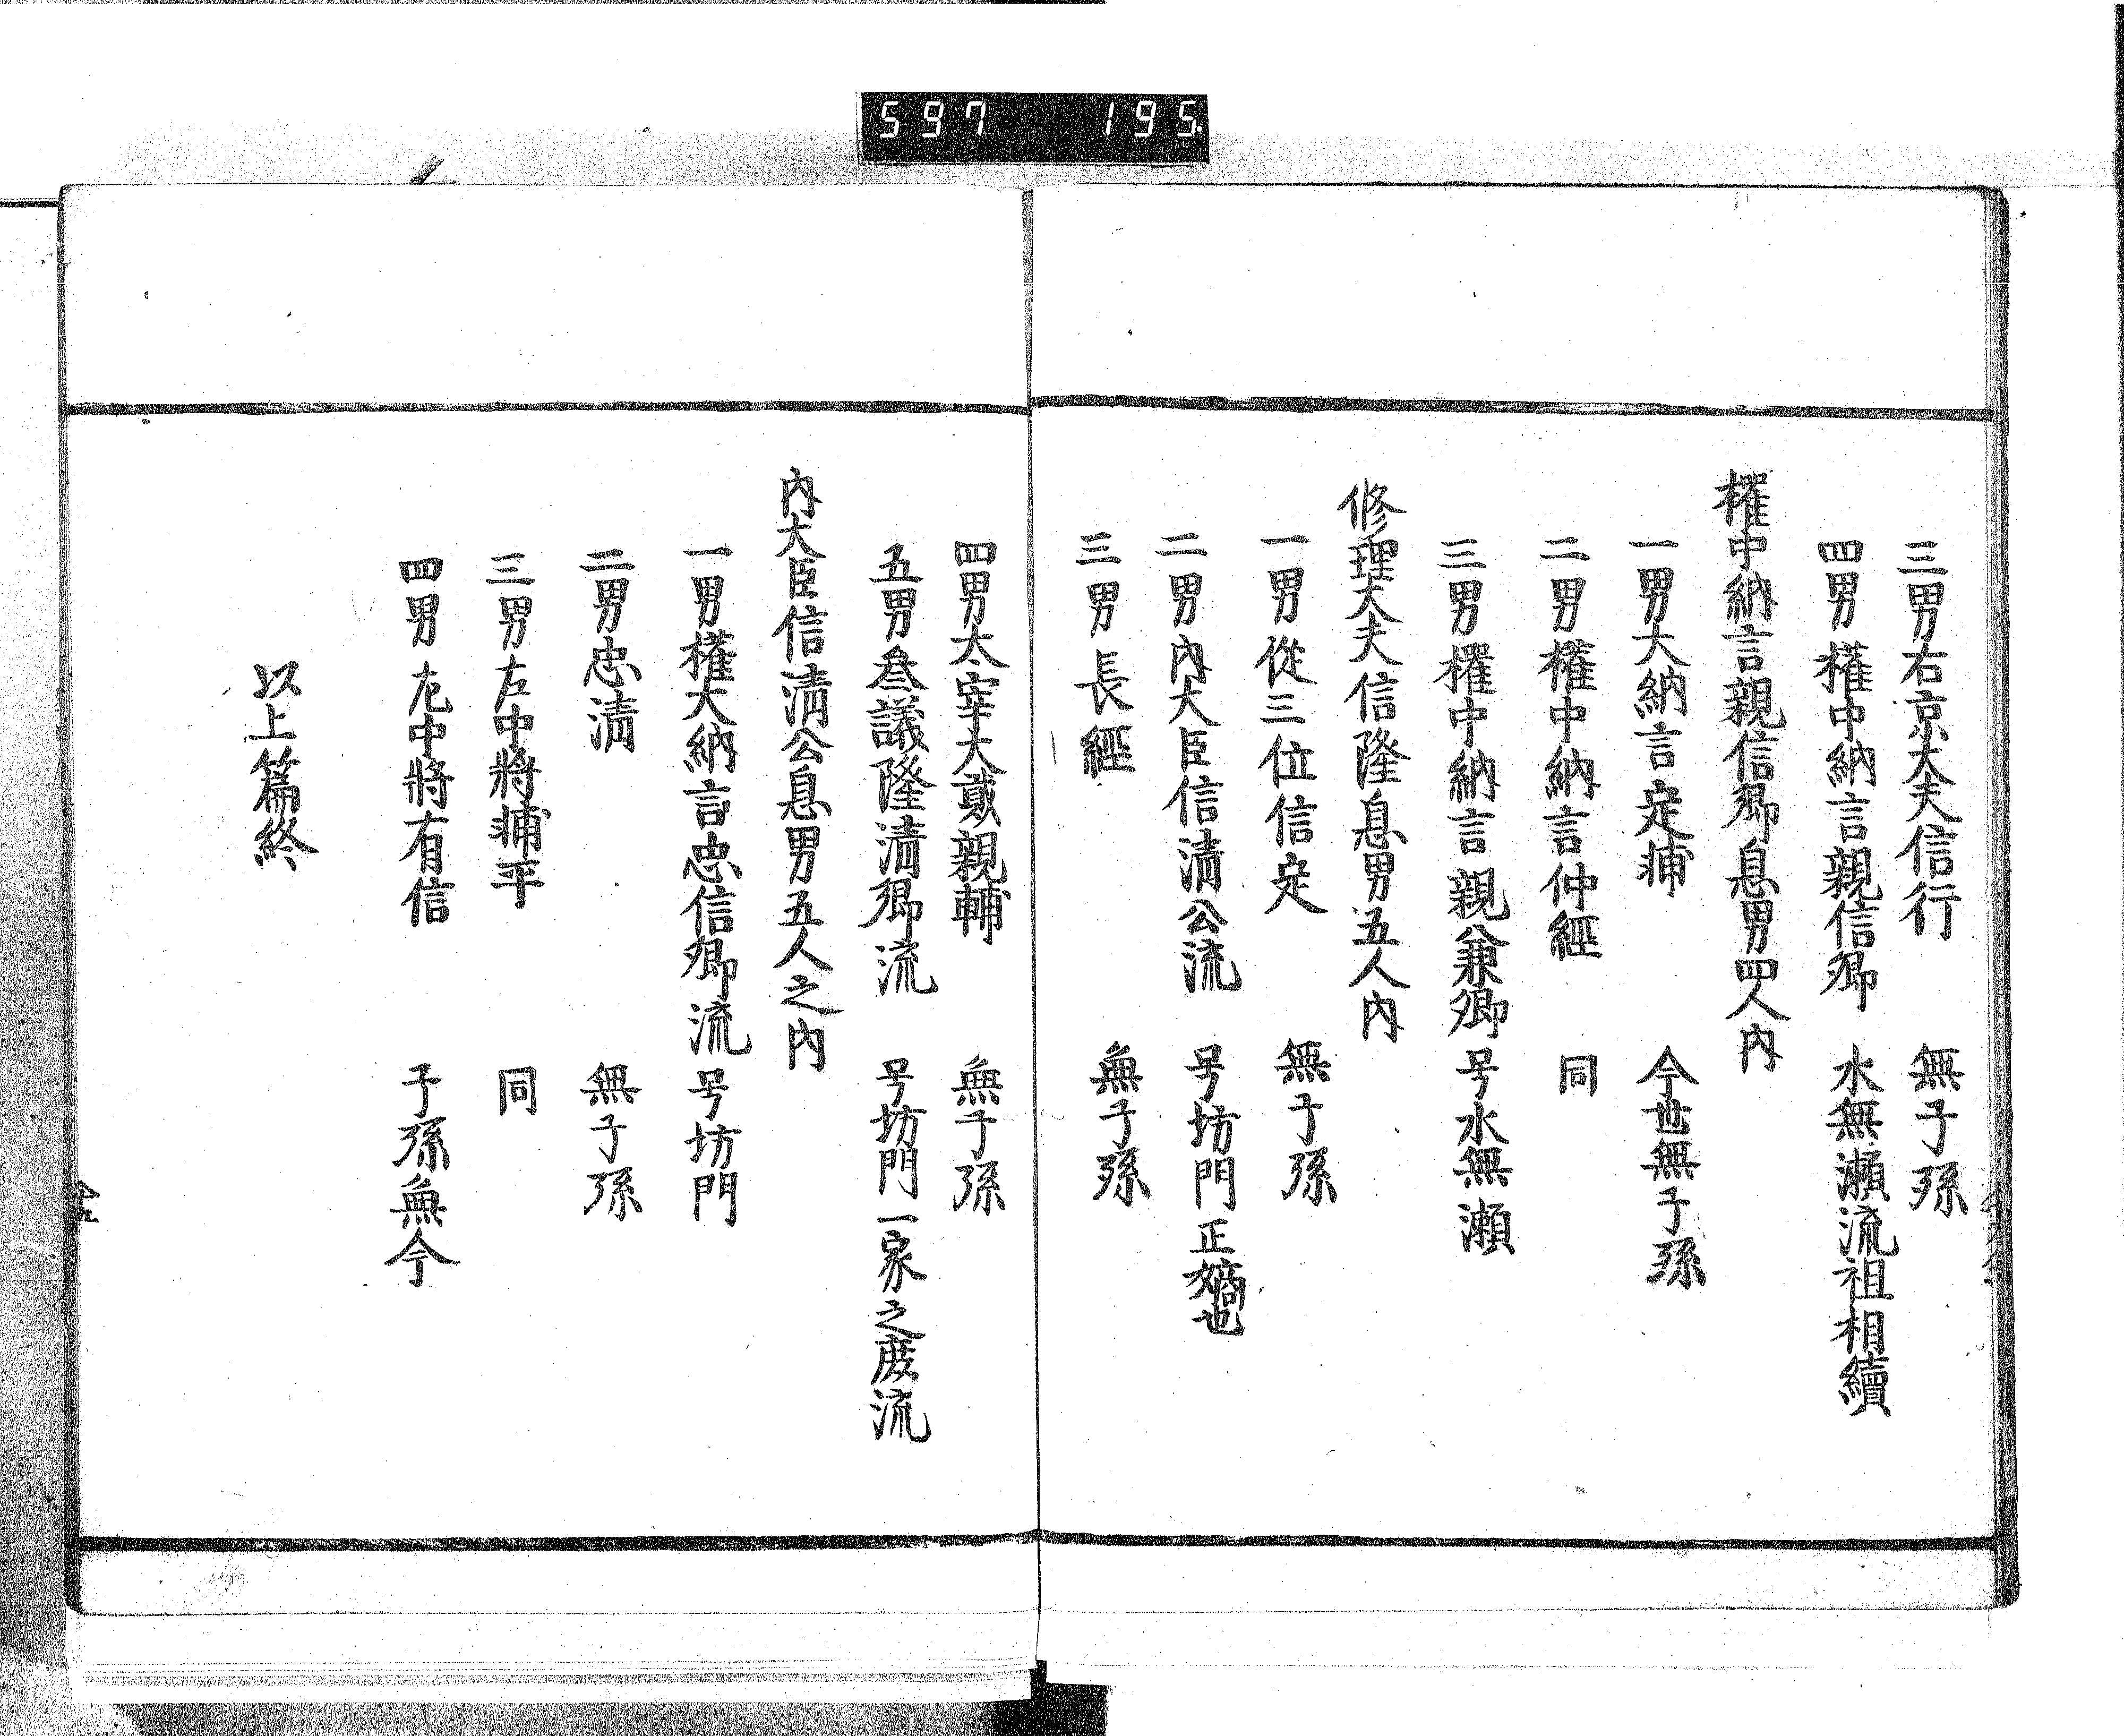 597 195
三男右京大夫信行 無子孫
四男權中納言親信卿 水無瀬流祖相續
權中納言親信卿息男四人內
一男大納言定輔 今世無子孫
二男權中納言仲經 同
三男權中納言親兼卿 号水無瀬
修理大夫信隆息男五人內
一男從三位信定 無子孫
二男內大臣信清公流 号坊門正嫡也
三男長經 無子孫
四男太宰大貳親輔 無子孫
五男叅議隆清卿流 号坊門一家之庶流
內大臣信清公息男五人之內
一男權大納言忠信卿流 号坊門
二男忠清 無子孫
三男左中將輔平 同
四男左中將有信 子孫無今
以上篇終